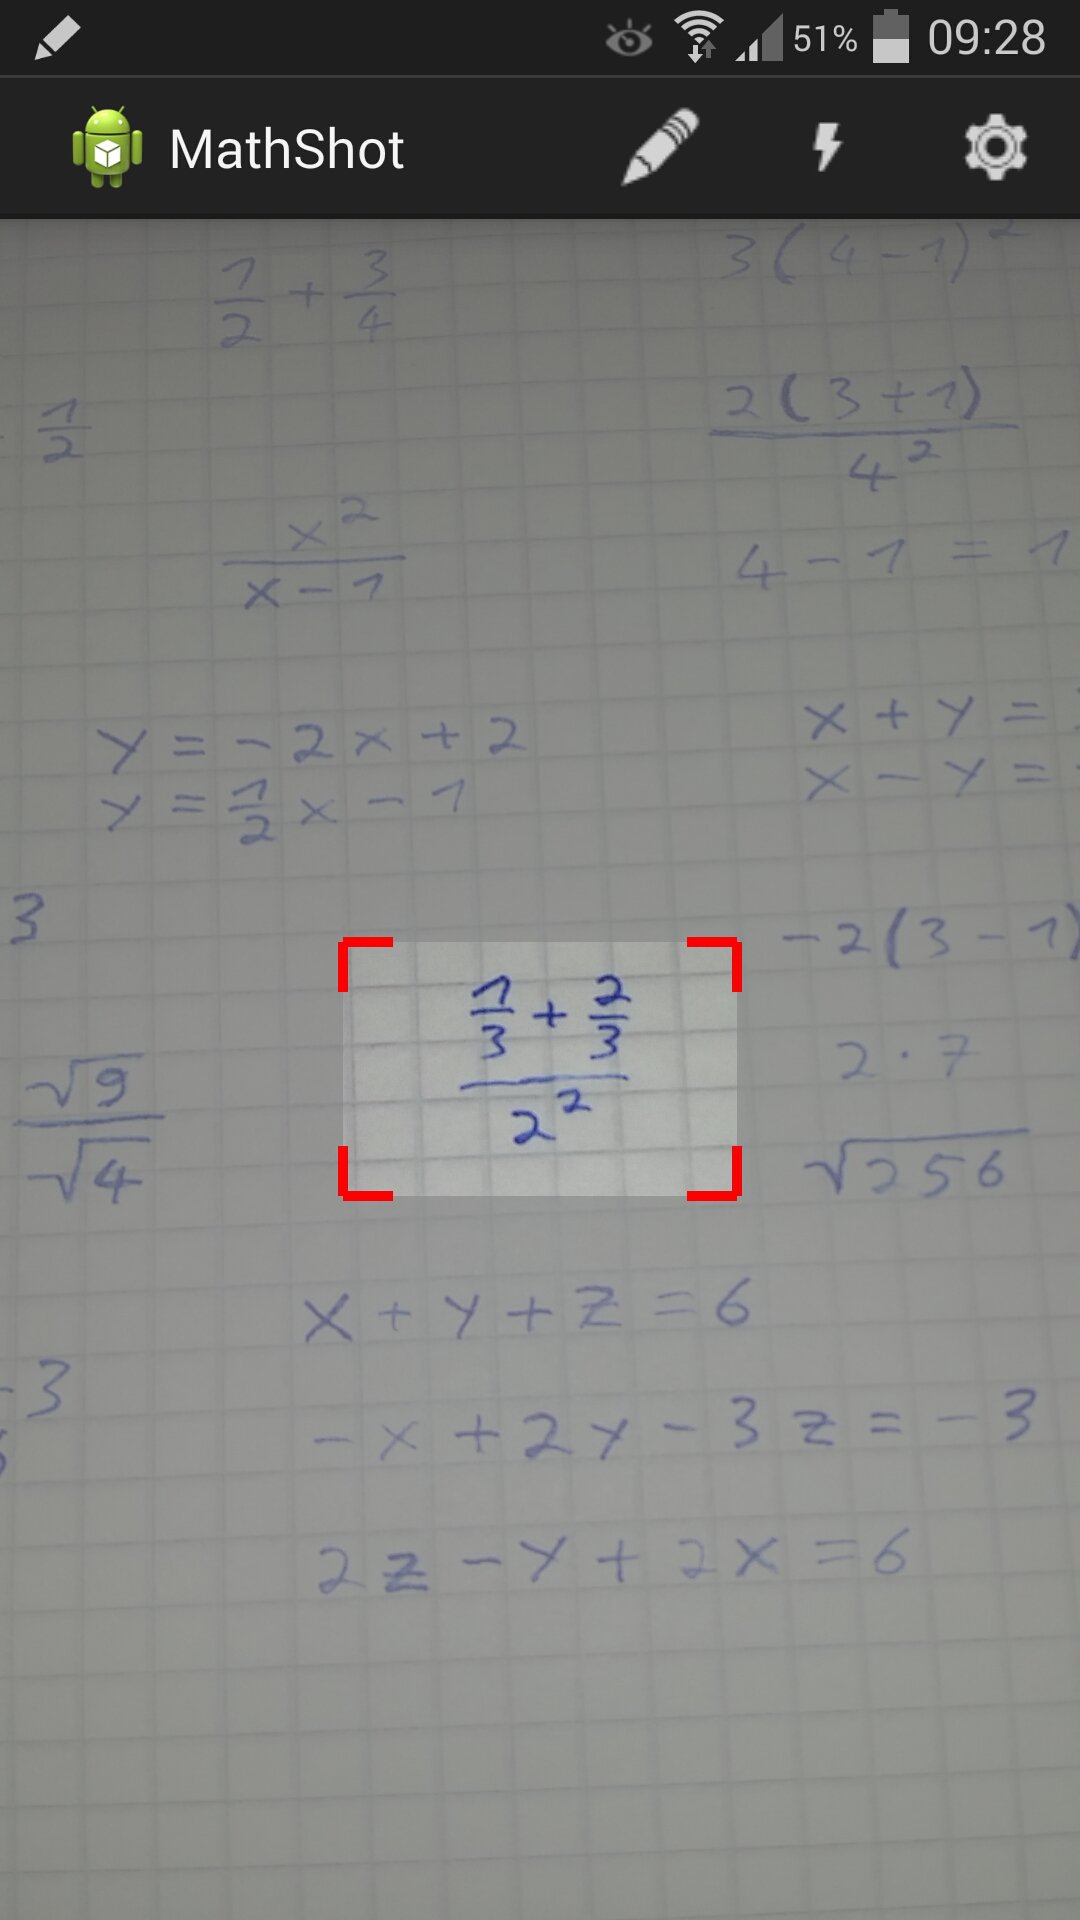 51% 09:28
MathShot
1/2 + 3/4
3(4-1)²
1/2
2(3+1)/4²
x²/(x-1)
4-1=1
y=-2x+2
x+y=
y=1/2x-1
x-y=
3
-2(3-1)
(1/3+2/3)/2²
2·7
√9/√4
√256
x+y+z=6
-3
-x+2y-3z=-3
2z-y+2x=6